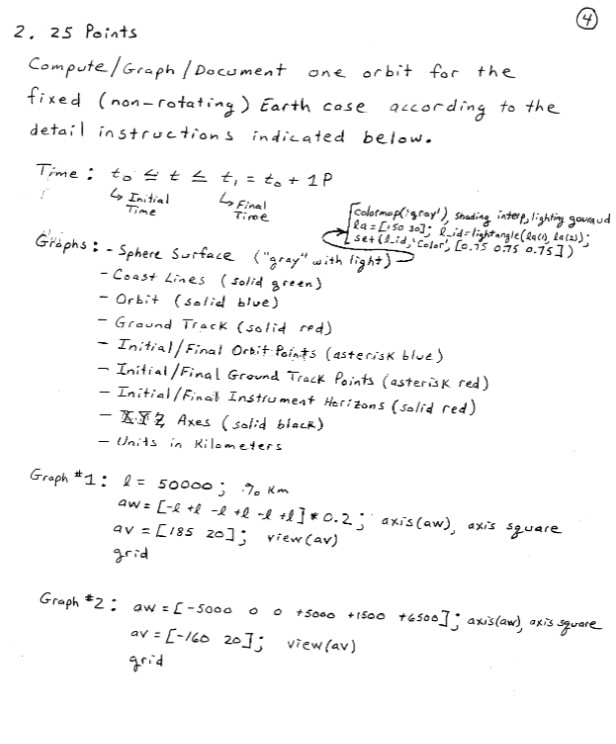 ④
2. 25 Points
Compute/Graph/Document one orbit for the
fixed (non-rotating) Earth case according to the
detail instructions indicated below.
Time: t₀ ≤ t ≤ t₁ = t₀ + 1P
↳ Initial Time
↳ Final Time
colormap('gray'), shading interp, lighting gouraud
la = [150 30]; l_id = lightangle(la(1), la(2));
set(l_id, 'Color', [0.75 0.75 0.75])
Graphs: - Sphere Surface ("gray" with light)
- Coast Lines (solid green)
- Orbit (solid blue)
- Ground Track (solid red)
- Initial/Final Orbit Points (asterisk blue)
- Initial/Final Ground Track Points (asterisk red)
- Initial/Final Instrument Horizons (solid red)
- XYZ Axes (solid black)
- Units in Kilometers
Graph #1: l = 50000; % km
aw = [-l +l -l +l -l +l]*0.2; axis(aw), axis square
av = [185 20]; view(av)
grid
Graph #2: aw = [-5000 0 0 +5000 +1500 +6500]; axis(aw), axis square
av = [-160 20]; view(av)
grid